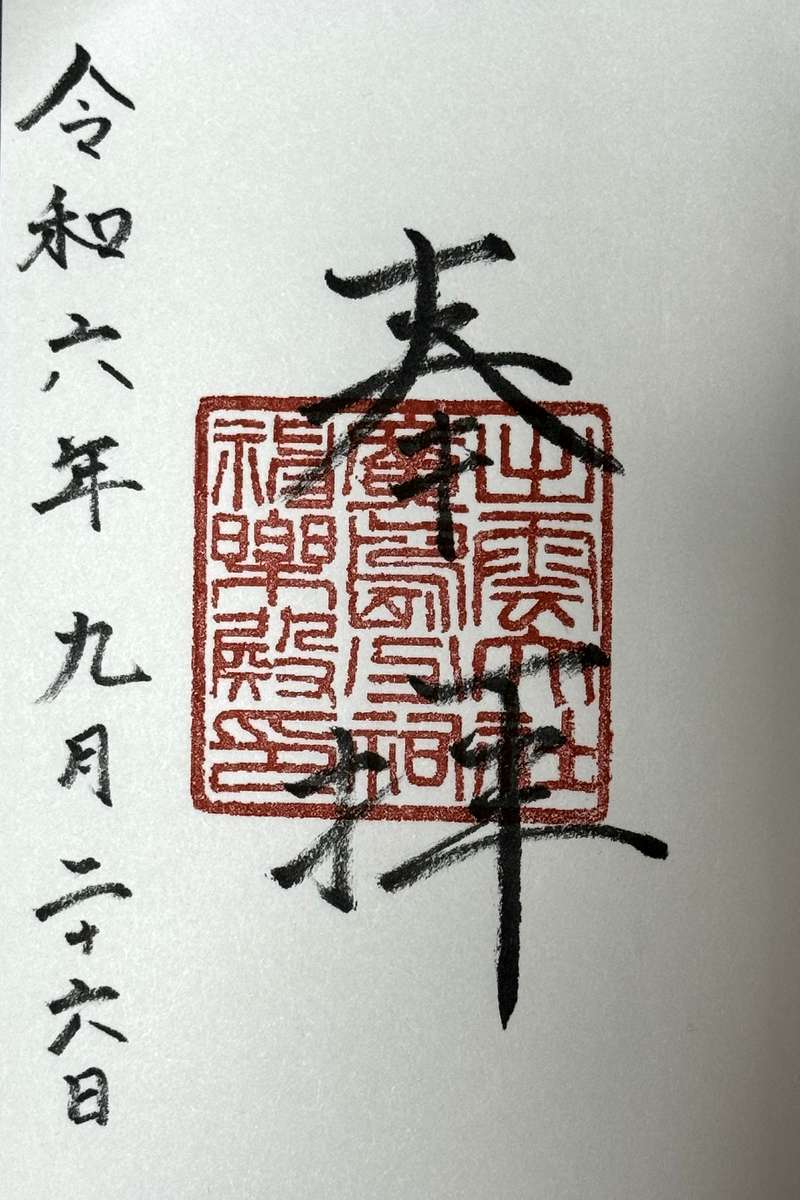 奉拝
出雲大社
廣島分祠
神樂殿印
令和六年九月二十六日